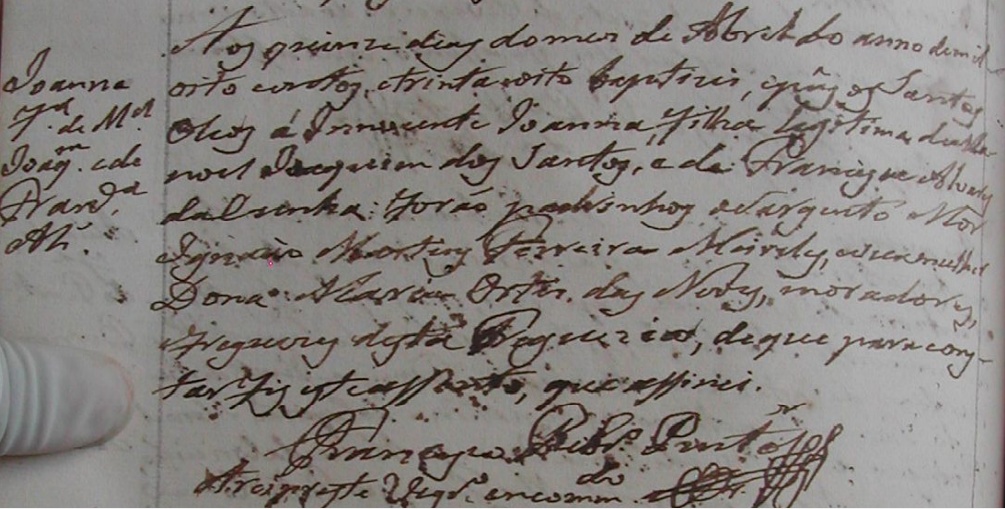 Joanna
f.ª de M.el
Joaq.m e de
Fran.ca
Alz.
Aos quinze dias domes de Abril do anno de mil
oito centos, etrintaeoito baptizei, e puz os Santos
Oleos á Innocente Joanna, filha legitima de Ma-
noel Joaquim dos Santos, e de Francisca Alvares
da Cunha: forão padrinhos o Sargento Mor
Ignacio Martins Ferreira Meireles, e sua mulher
Dona Maria Ortiz das Neves, moradores,
e freguezes desta Freguezia, de que para cons-
tar fiz este assento, que assinei.
Francisco Rib.o Pinto
Arcipreste Vigr.o encomm.do